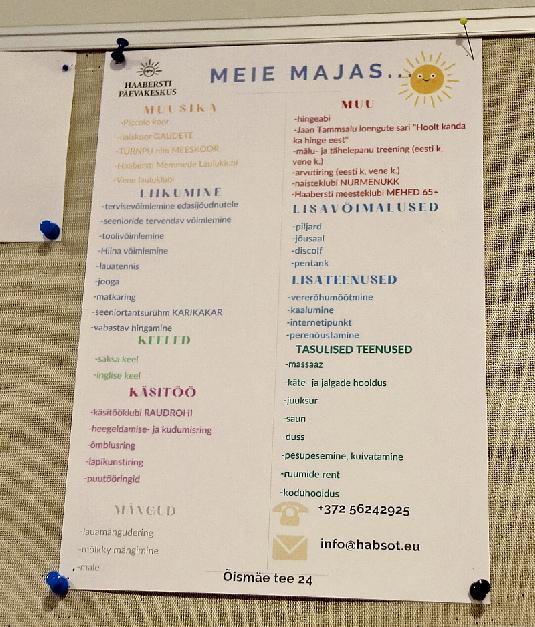 HAABERSTI
PÄEVAKESKUS
MEIE MAJAS...
MUUSIKA
-Piccolo koor
-naiskoor GAUDETE
-TURNPU nim MEESKOOR
-Haabersti Memmede Laulukool
-Vene lauluklubi
LIIKUMINE
-tervisevõimlemine edasijõudnutele
-seenioride tervendav võimlemine
-toolivõimlemine
-Hiina võimlemine
-lauatennis
-jooga
-matkaring
-seeniortantsurühm KARIKAKAR
-vabastav hingamine
KEELED
-saksa keel
-inglise keel
KÄSITÖÖ
-käsitööklubi RAUDROHI
-heegeldamise- ja kudumisring
-õmblusring
-lapikunstiring
-puutööringid
MÄNGUD
-lauamängudering
-mölkky mängimine
-male
MUU
-hingeabi
-Jaan Tammsalu loengute sari "Hoolt kanda
ka hinge eest"
-mälu- ja tähelepanu treening (eesti k,
vene k.)
-arvutiring (eesti k, vene k.)
-naisteklubi NURMENUKK
-Haabersti meesteklubi MEHED 65+
LISAVÕIMALUSED
-piljard
-jõusaal
-discolf
-pentank
LISATEENUSED
-vererõhumõõtmine
-kaalumine
-internetipunkt
-perenõustamine
TASULISED TEENUSED
-massaaz
-käte- ja jalgade hooldus
-juuksur
-saun
-duss
-pesupesemine, kuivatamine
-ruumide rent
-koduhooldus
+372 56242925
info@habsot.eu
Õismäe tee 24